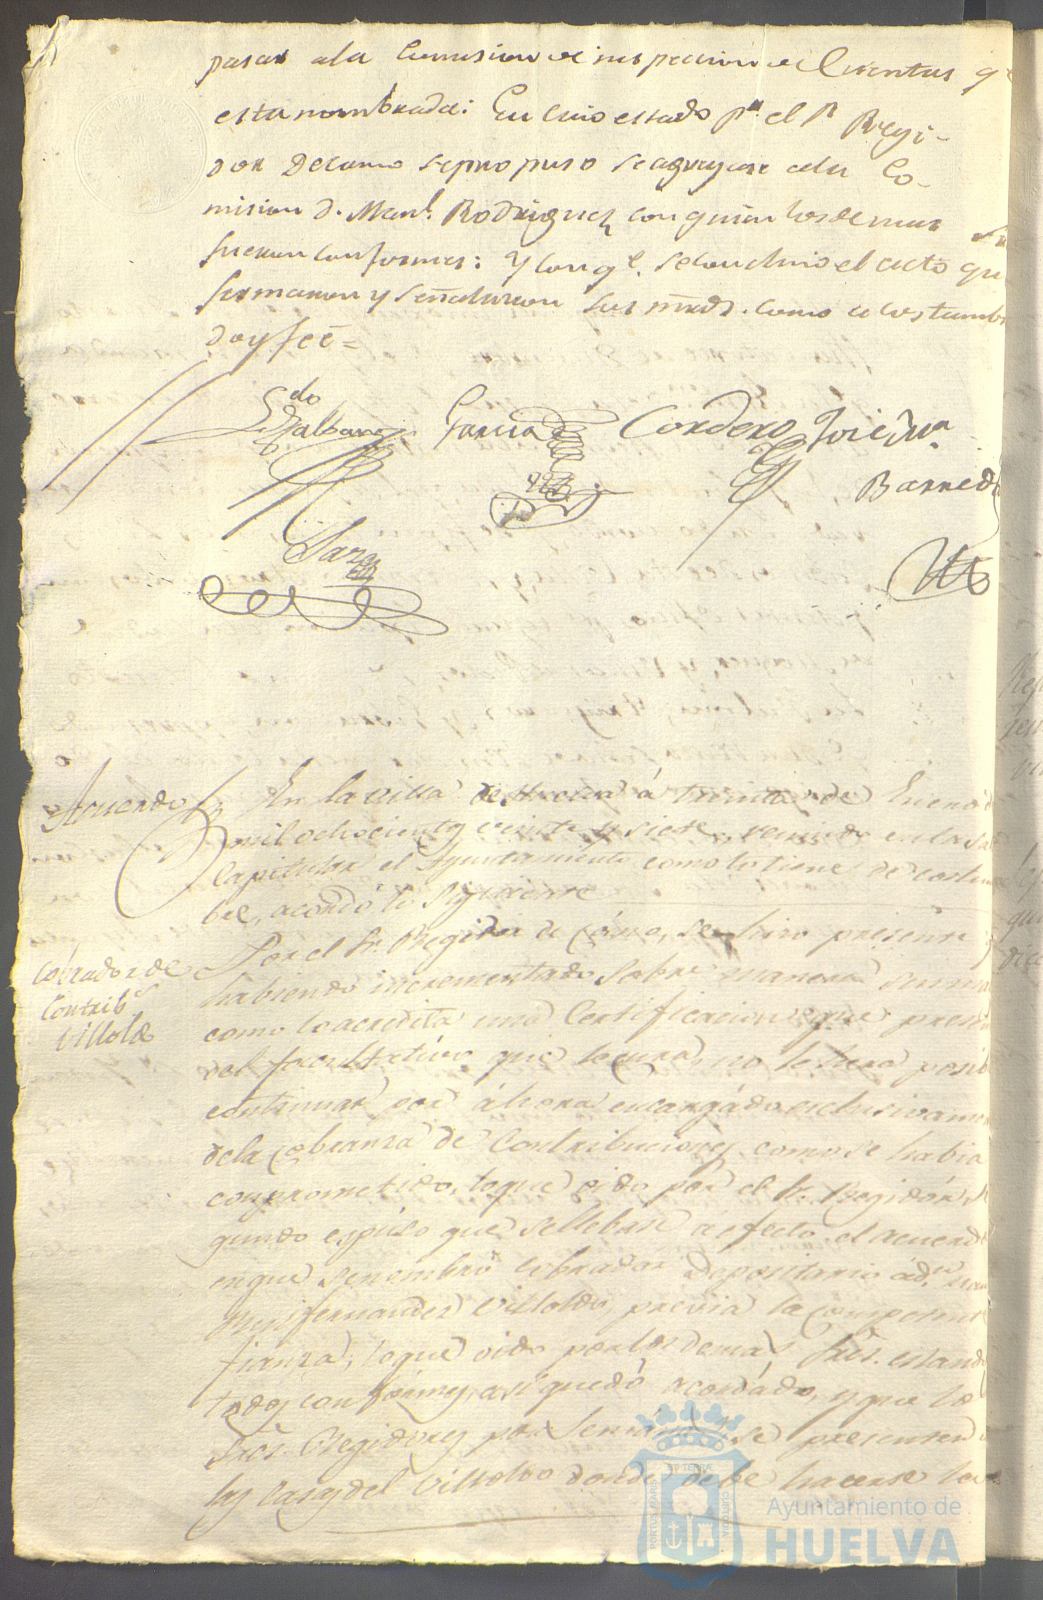 pasar ala Comision de inspeccion de Cuentas q.e
esta nombrada: En cuio estado p.r el S.r Regi-
dor Decano se propuso se agregase ala Co-
mision d. Man.l Rodriguez con quien los demas
fueron conformes: Y con q.e se concluio el acto que
firmaron y señalaron sus mrds. como acostumb
doy feé =
Ldo
Galban Garcia Cordero
Barreda
Sanz
Acuerdo En la villa de Huelva á treinta de Enero d
mil ochocientos veinte y siete, reunido en la Sa
Capitular el Ayuntamiento como lo tiene de costum
bre, acordó lo siguiente
Cobrador de
Contrib.s
Villoldo
Por el Sr. Regidor de cano, se hizo presente q
habiendo incrementado sobre manera su
como lo acredita una Certificacion que prese
del facultativo que lo cura, no le sera posib
continuar por ahora encargado esclusivamen
dela cobranza de Contribuciones como se habia
comprometido, loque oido por el Sr. Regidór se
gundo espuso que se llebase á efecto el acuerdo
enque se nombró cobrador Depositario á d.n
Fernandez Villoldo, previa la competent
fianza; loque oido por los demas Sres. estando
todos conformes, asi quedó acordado, y que los
Sres. Regidores por Semana se presenten
las casas del Villoldo donde debe hacerse la
PORTUS MARIS
ET TERRAE
CUSTODIA
Ayuntamiento de
HUELVA